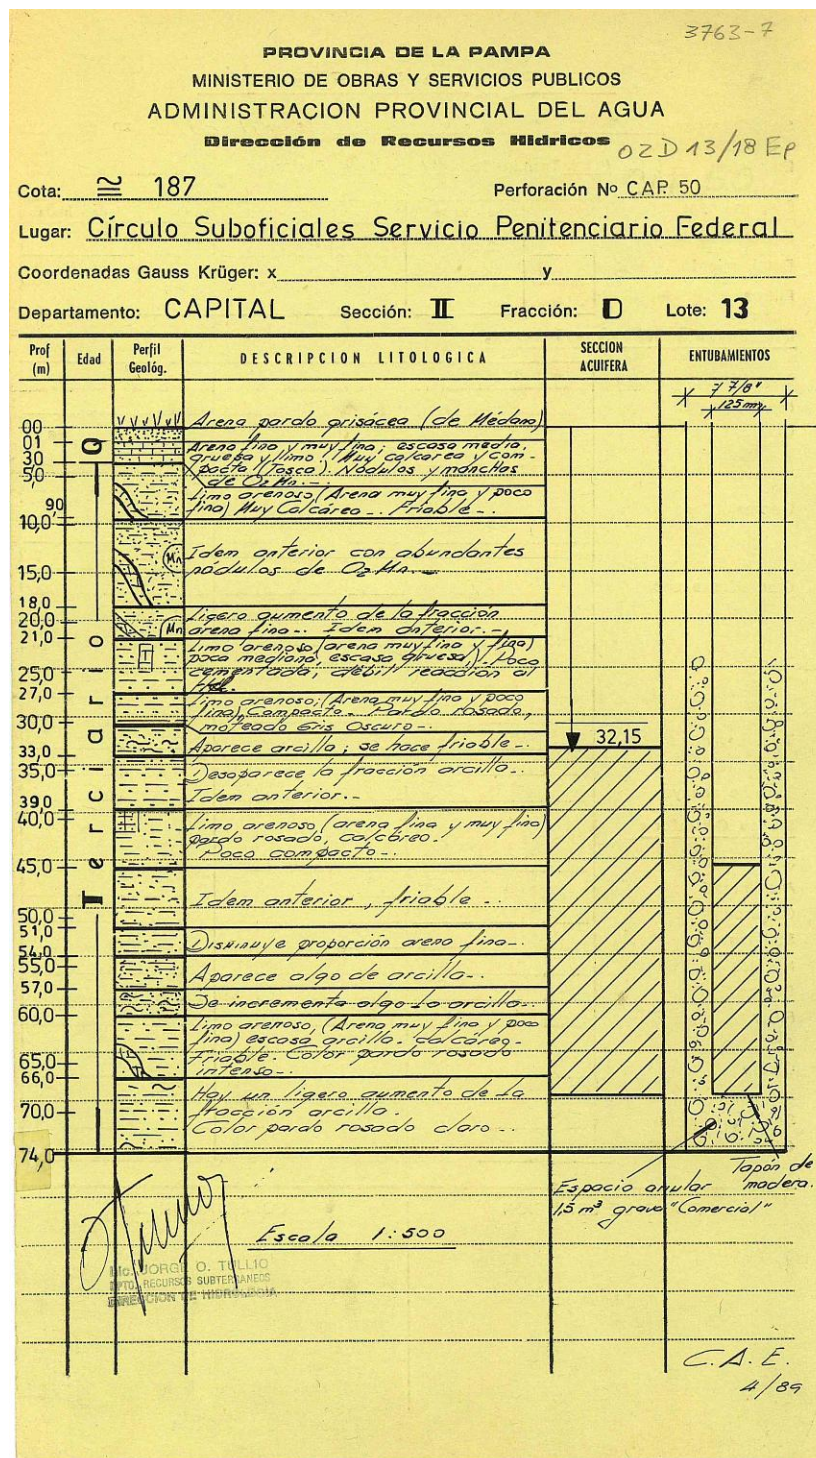 3763-7
PROVINCIA DE LA PAMPA
MINISTERIO DE OBRAS Y SERVICIOS PUBLICOS
ADMINISTRACION PROVINCIAL DEL AGUA
Dirección de Recursos Hídricos
OZD 13/18 Ep
Cota: ≅ 187 Perforación Nº CAP. 50
Lugar: Círculo Suboficiales Servicio Penitenciario Federal
Coordenadas Gauss Krüger: x y
Departamento: CAPITAL Sección: II Fracción: D Lote: 13
Prof (m) Edad Perfil Geológ. DESCRIPCION LITOLOGICA SECCION ACUIFERA ENTUBAMIENTOS
7 7/8"
125mm
00 Arena pardo grisácea (de Médano)
01 Q Arena fina y muy fina; escasa media,
30 gruesa y limo. Muy calcárea y com-
50 pacta (Tosca). Nódulos y manchas
de O₂Mn.-
90 Limo arenoso (Arena muy fina y poco
10,0 fina) Muy Calcáreo-. Friable-.
Mn Idem anterior con abundantes
15,0 nódulos de O₂Mn.-
18,0
20,0 Ligero aumento de la fracción
21,0 Mn arena fina-. Idem anterior.-
T Limo arenoso (arena muy fina y fina)
poca mediana, escasa gruesa). Poco
25,0 cementada; débil reacción al
27,0
Limo arenoso; (Arena muy fina y poco
30,0 fina) Compacto-. Pardo rosado,
moteado gris oscuro-.
33,0 Aparece arcilla; se hace friable-. 32,15
35,0 Desaparece la fracción arcilla-.
39,0 Idem anterior.-
40,0 Limo arenoso, (arena fina y muy fina)
pardo rosado, calcáreo-.
45,0 Poco compacto-.
Terciario
50,0 Idem anterior, friable-.
51,0
54,0 Disminuye proporción arena fina-.
55,0 Aparece algo de arcilla-.
57,0
60,0 Se incrementa algo la arcilla-.
Limo arenoso, (Arena muy fina y poco
fina) escasa arcilla. Calcáreo-
65,0 Friable. Color pardo rosado
66,0 intenso-.
Hay un ligero aumento de la
70,0 fracción arcilla.
Color pardo rosado claro-.
74,0
Tapón de madera.
Espacio anular
1,5 m³ grava "Comercial"
Escala 1:500
Lic. JORGE O. TULLIO
DPTO. RECURSOS SUBTERRANEOS
DIRECCION DE HIDROLOGIA
C.A.E.
4/89